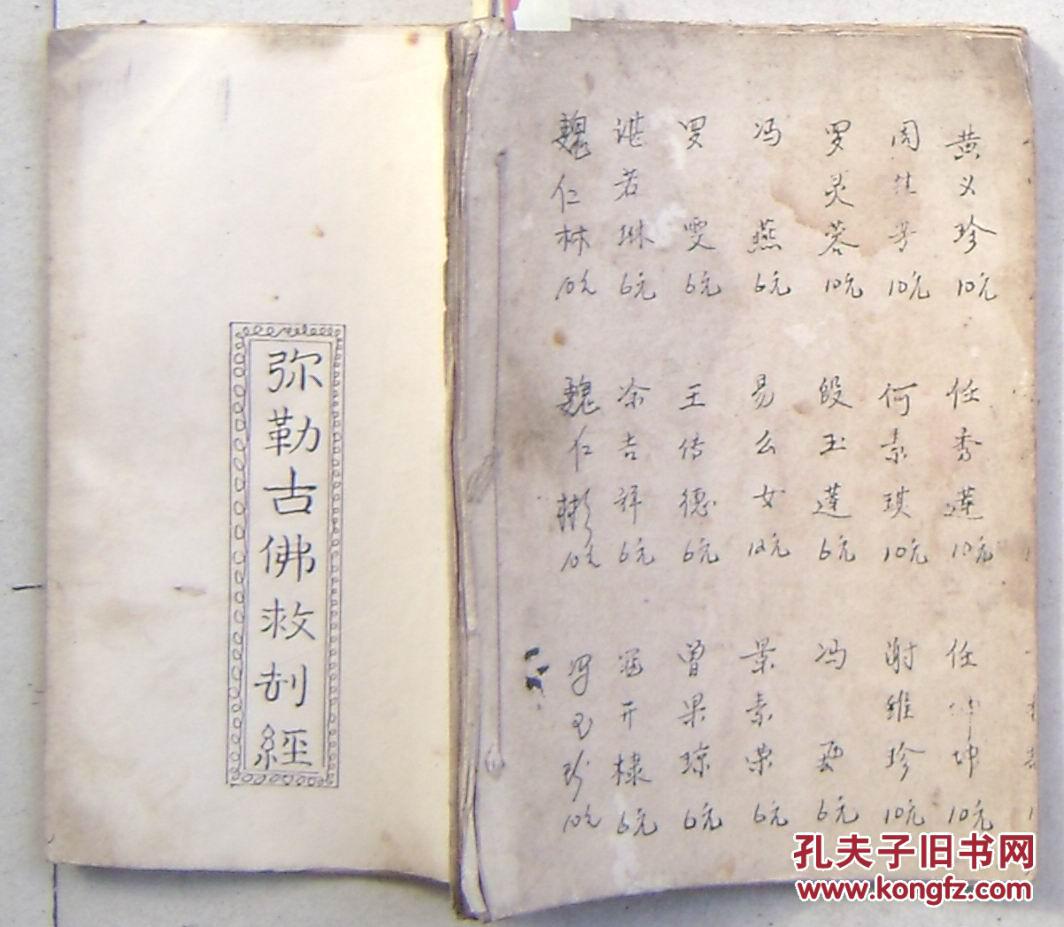 弥勒古佛救刦經
黄义珍 10元
任秀莲 10元
任 坤 10元
周桂芳 10元
何素琪 10元
谢维珍 10元
罗灵蓉 10元
段玉莲 6元
冯 6元
冯燕 6元
易么女 12元
景素荣 6元
罗雯 6元
王传德 6元
曾果琼 6元
谌若琳 6元
余吉祥 6元
冯开棣 6元
魏仁林 10元
魏仁彬 10元
冯玉珍 10元
孔夫子旧书网
www.kongfz.com